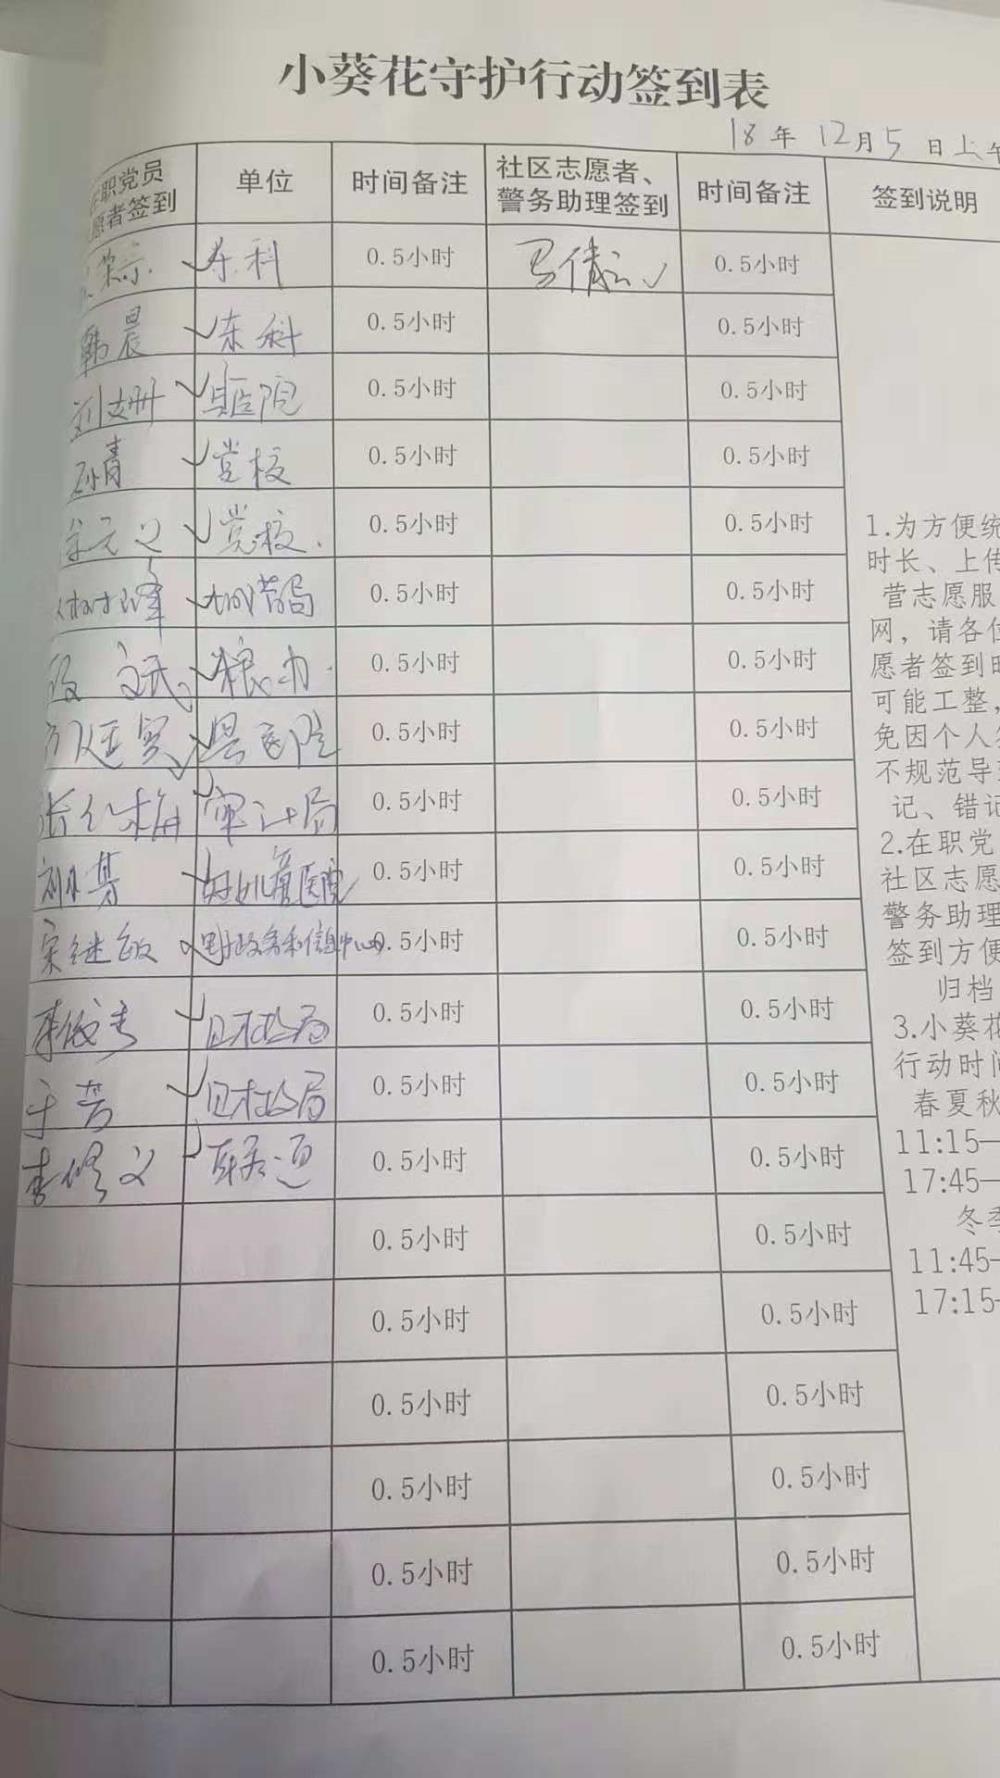 小葵花守护行动签到表
18年12月5日上午
职党员
愿者签到
单位
时间备注
社区志愿者、
警务助理签到
时间备注
签到说明
东科 0.5小时 0.5小时
韩晨 东科 0.5小时 0.5小时
县医院 0.5小时 0.5小时
孙青 党校 0.5小时 0.5小时
党校. 0.5小时 0.5小时
0.5小时 0.5小时
段 粮办. 0.5小时 0.5小时
县医院 0.5小时 0.5小时
审计局 0.5小时 0.5小时
妇儿童医院 0.5小时 0.5小时
宋继敏 .5小时 0.5小时
0.5小时 0.5小时
于芳 0.5小时 0.5小时
李修义 联通 0.5小时 0.5小时
0.5小时 0.5小时
0.5小时 0.5小时
0.5小时 0.5小时
0.5小时 0.5小时
0.5小时 0.5小时
0.5小时 0.5小时
1.为方便统
时长、上传
营志愿服
网，请各位
愿者签到时
可能工整，
免因个人
不规范导
记、错记
2.在职党
社区志愿
警务助理
签到方便
归档
3.小葵花
行动时间
春夏秋
11:15—
17:45—
冬季
11:45—
17:15—